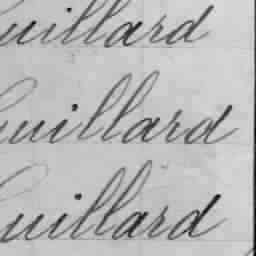 uillard
uillard
Guillard